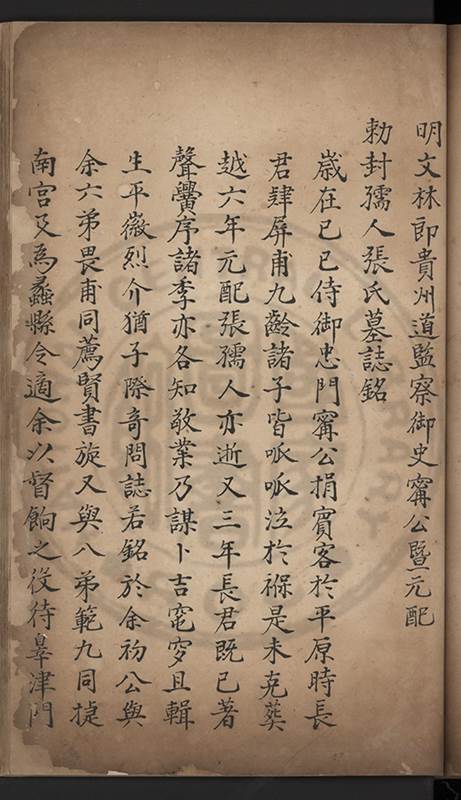 明文林郎貴州道監察御史甯公暨元配
勑封孺人張氏墓誌銘
歲在己巳侍御忠門甯公捐賓客於平原時長
君肆屏甫九齡諸子皆呱呱泣於褓是未克葬
越六年元配張孺人亦逝又三年長君既已著
聲黌序諸季亦各知敬業乃謀卜吉窀穸且輯
生平徽烈介猶子際奇問誌若銘於余初公與
余六弟畏甫同薦賢書旋又與八弟範九同捷
南宮又為蠡縣令適余以督餉之役待皋津門